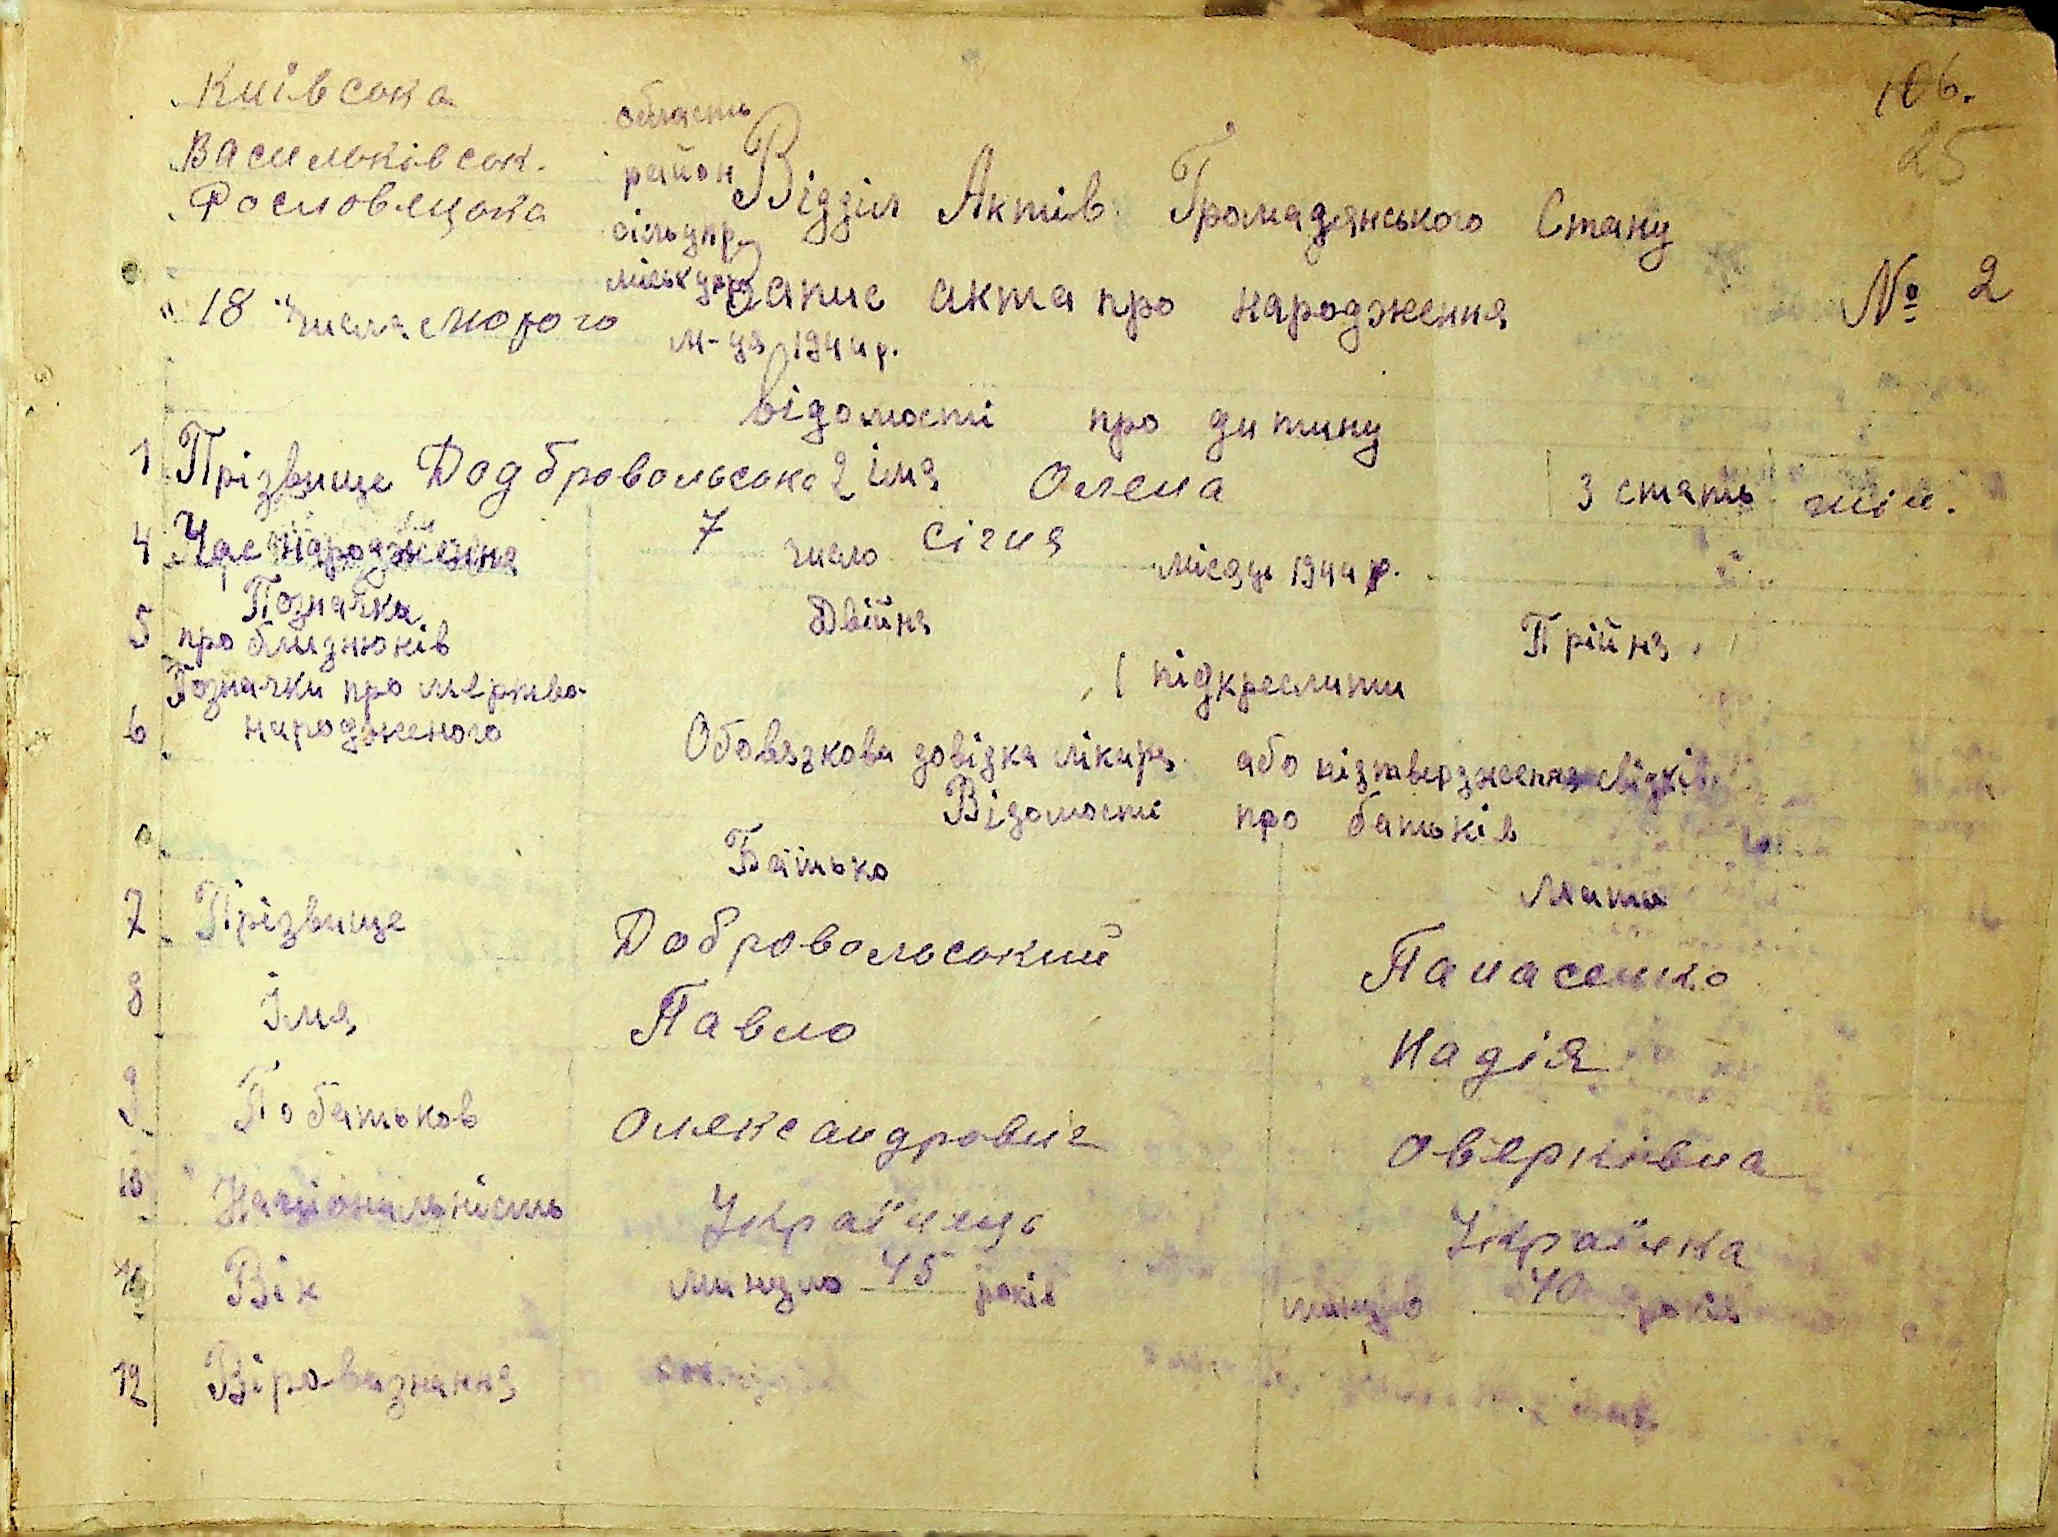 106.
25
Київська область
Васильківськ. район
Фословецька сільупр.
міськупр.
Відділ Актів Громадянського Стану
Запис акта про народження № 2
"18" числа лютого м-ця 1944 р.
Відомості про дитину
1 Прізвище Додбровольська 2 імя Олена 3 стать жін.
4 Час народження 7 число січня місяць 1944 р.
5 Позначка про близнюків Двійня Трійня
підкреслити
6 Позначки про мертво-народженого
Обовязкова довідка лікаря або підтвердження свідків
Відомості про батьків
Батько Мати
7 Прізвище Добровольський Панасенко
8 Імя Павло Надія
9 По батьков Олександрович Оверківна
10 Національність Українець Українка
Вік минуло 45 років минуло 40 років
12 Віро-визнання